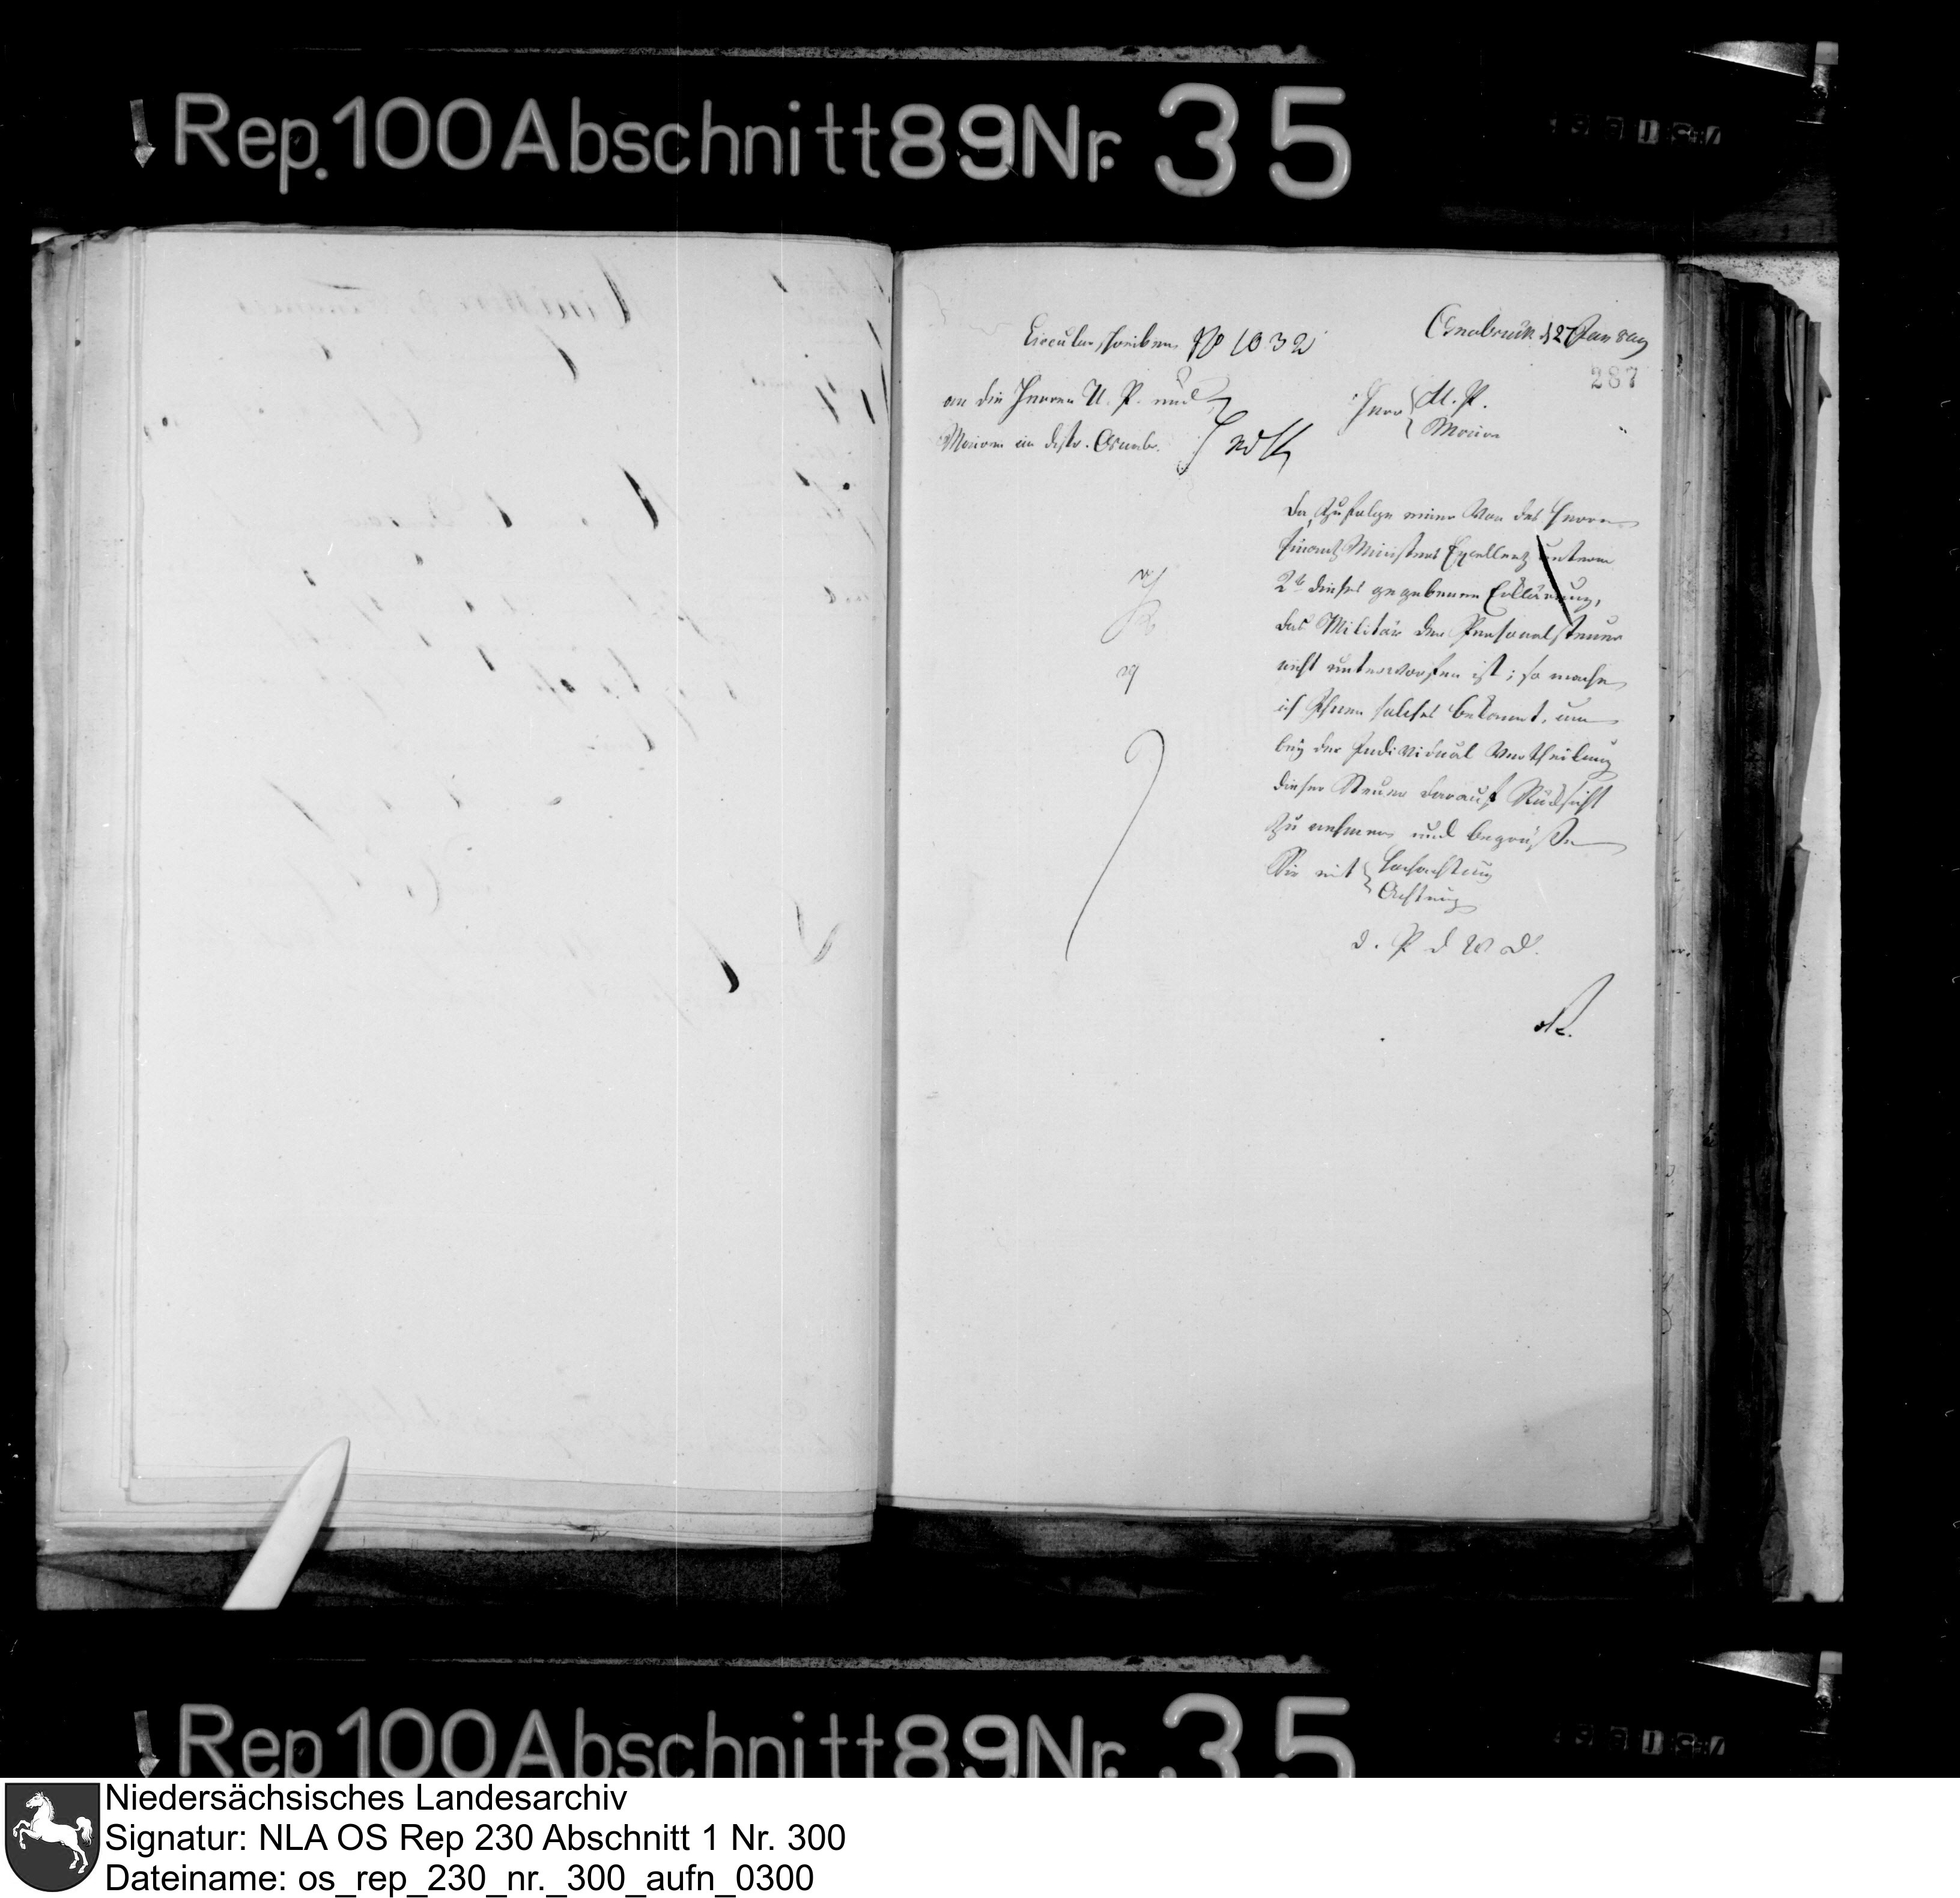 Rep. 100 Abschnitt 89 Nr. 35
Circularschreiben No 1032
Osnabrück d 27 Jan 809
287
an die Herren U. P. und
Maires im distr. Osnabr.
Herr U. P.
Maire
Da, zufolge einer von des Herrn
Finanz Ministers Excellenz unterm
2t dieses gegebenen Erklärung,
das Militär der Personalsteuer
nicht unterworfen ist; so mache
ich Ihnen solches bekannt, um
bey der Individual Vertheilung
dieser Steuer darauf Rücksicht
zu nehmen und begrüße
Sie mit Hochachtung
Achtung
d. P d W D.
Rep 100 Abschnitt 89 Nr. 35
Niedersächsisches Landesarchiv
Signatur: NLA OS Rep 230 Abschnitt 1 Nr. 300
Dateiname: os_rep_230_nr._300_aufn_0300